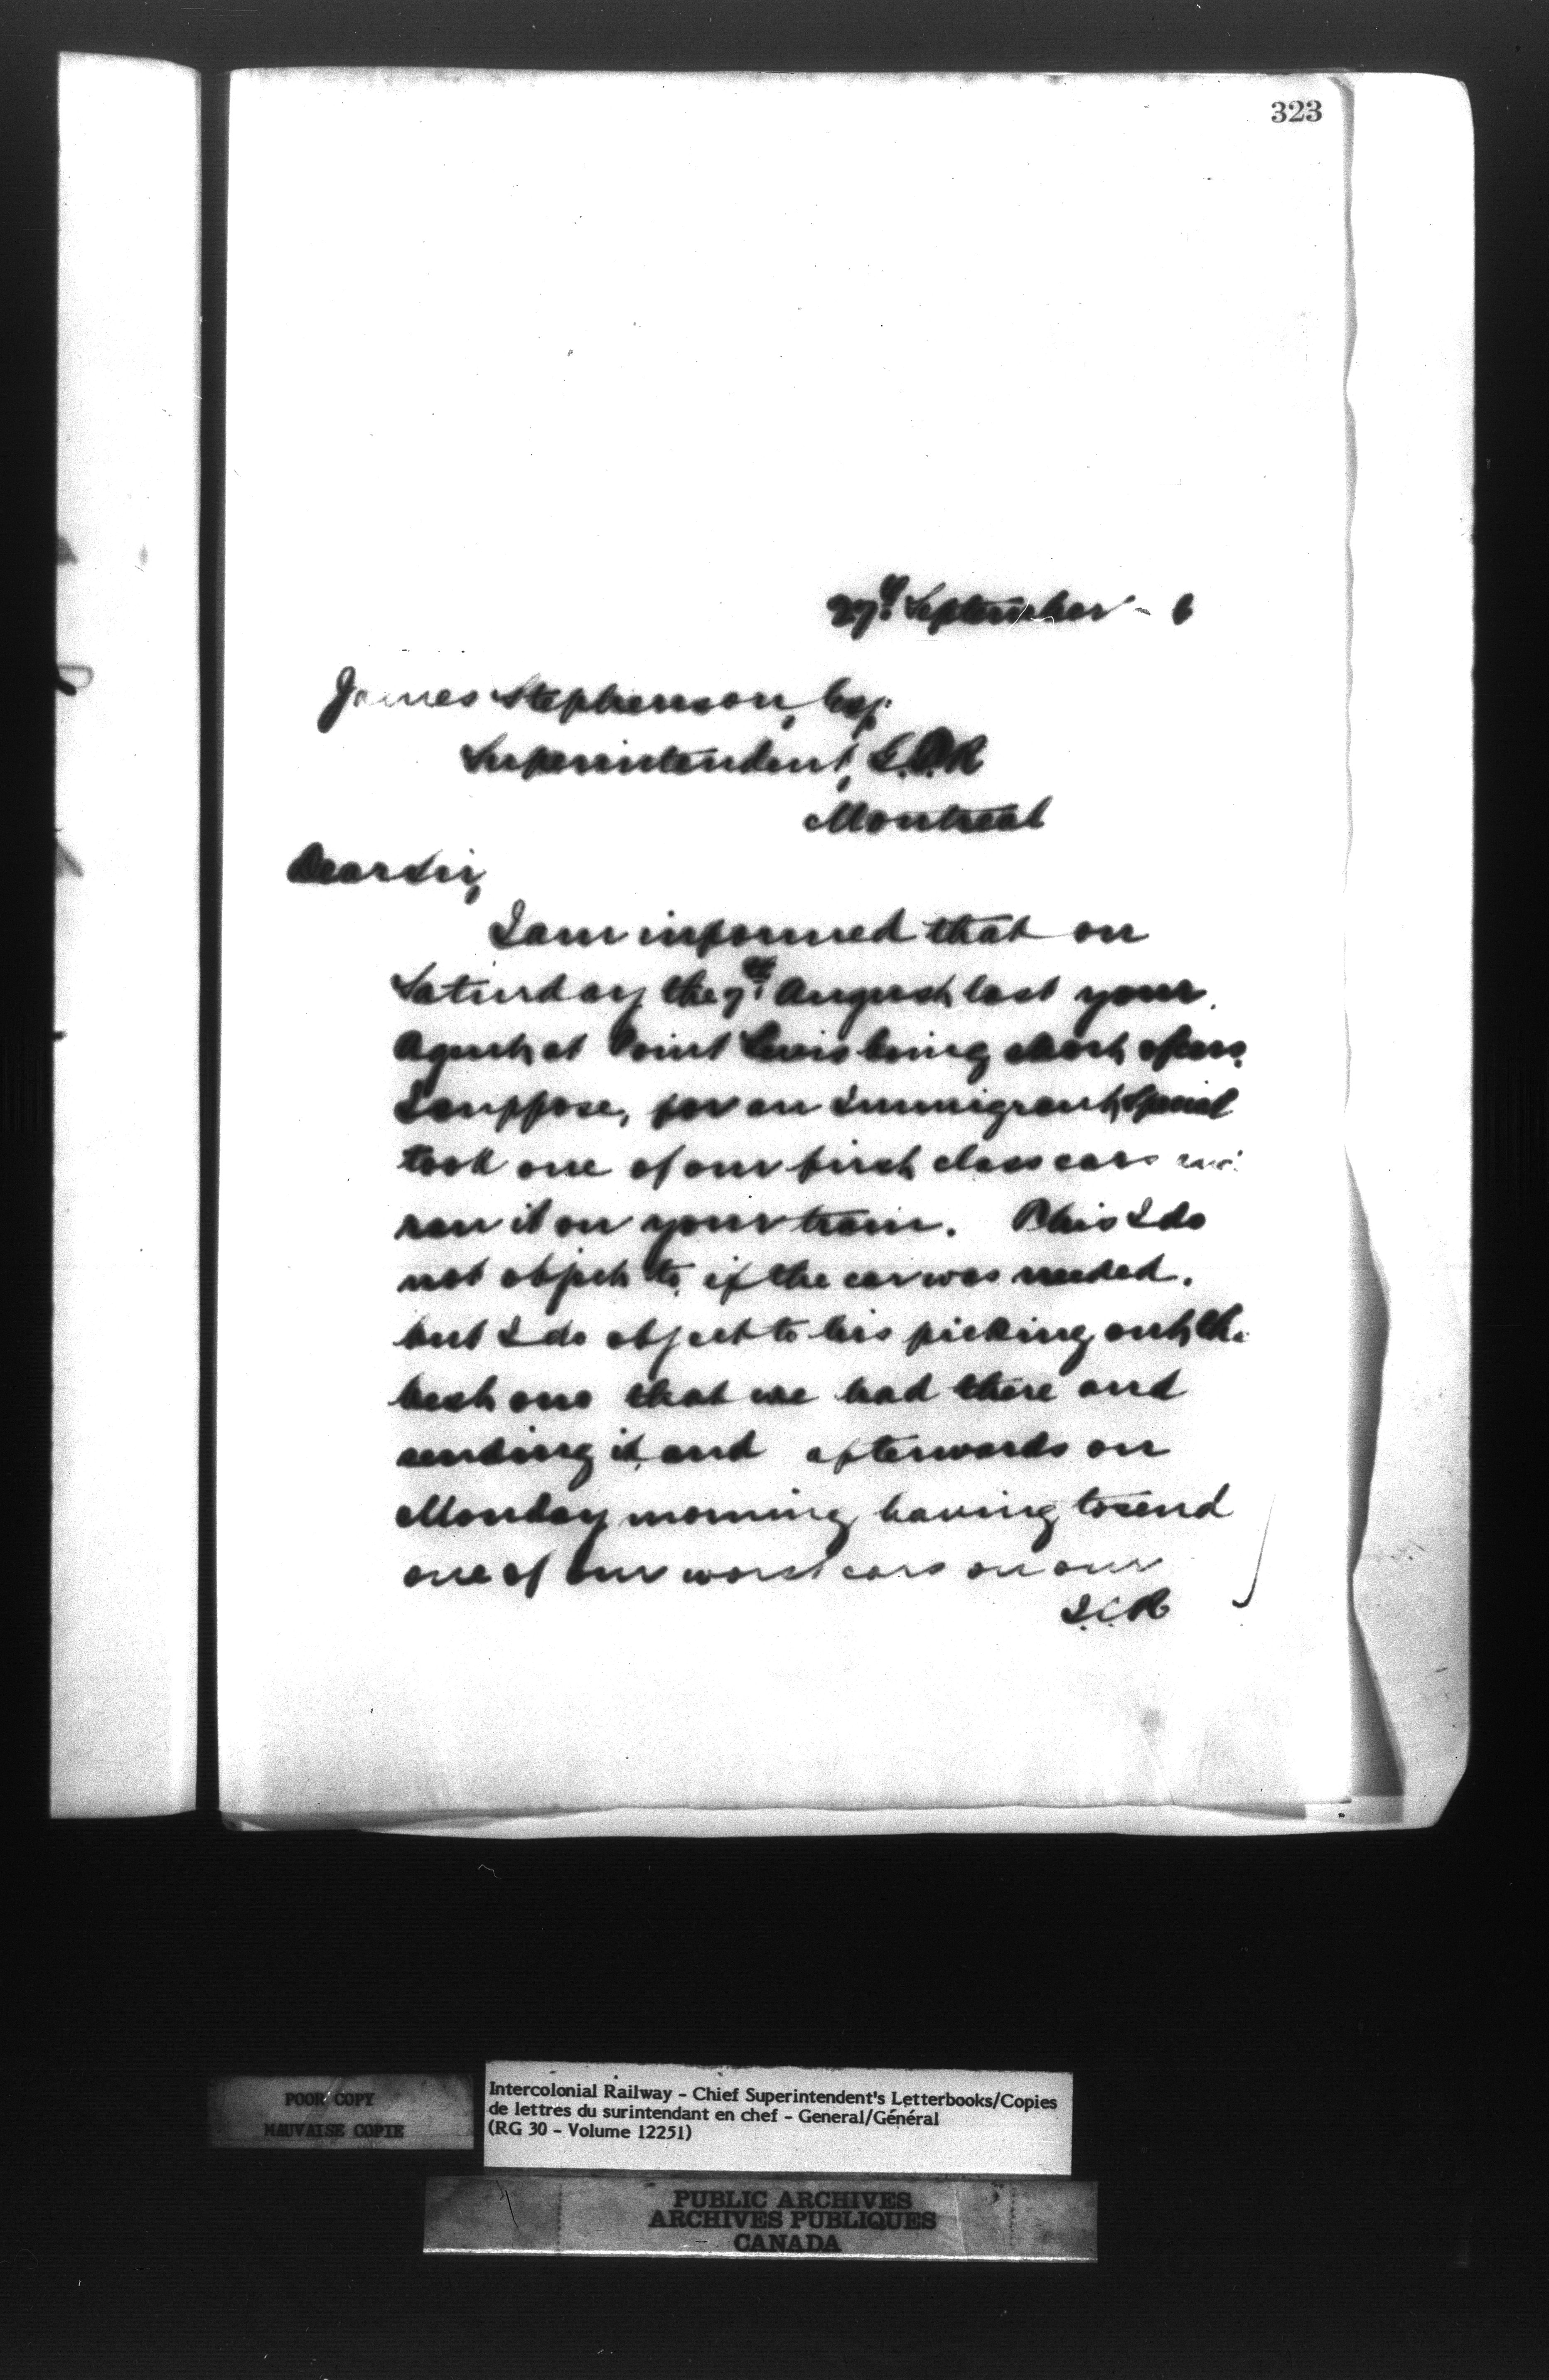 323
27th September - 6
James Stephenson, Esq.
Superintendent, G.T.R
Montreal
Dear Sir,
I am informed that on
Saturday the 7th August last your
Agent at Point Levis being short of cars
I suppose, for an Immigrant Special
took one of our first class cars and
ran it on your train. This I do
not object to if the car was needed.
but I do object to his picking out the
best one that we had there and
sending it and afterwards on
Monday morning having to send
one of our worst cars on our
I.C.R
POOR COPY
MAUVAISE COPIE
Intercolonial Railway - Chief Superintendent's Letterbooks/Copies
de lettres du surintendant en chef - General/Général
(RG 30 - Volume 12251)
PUBLIC ARCHIVES
ARCHIVES PUBLIQUES
CANADA